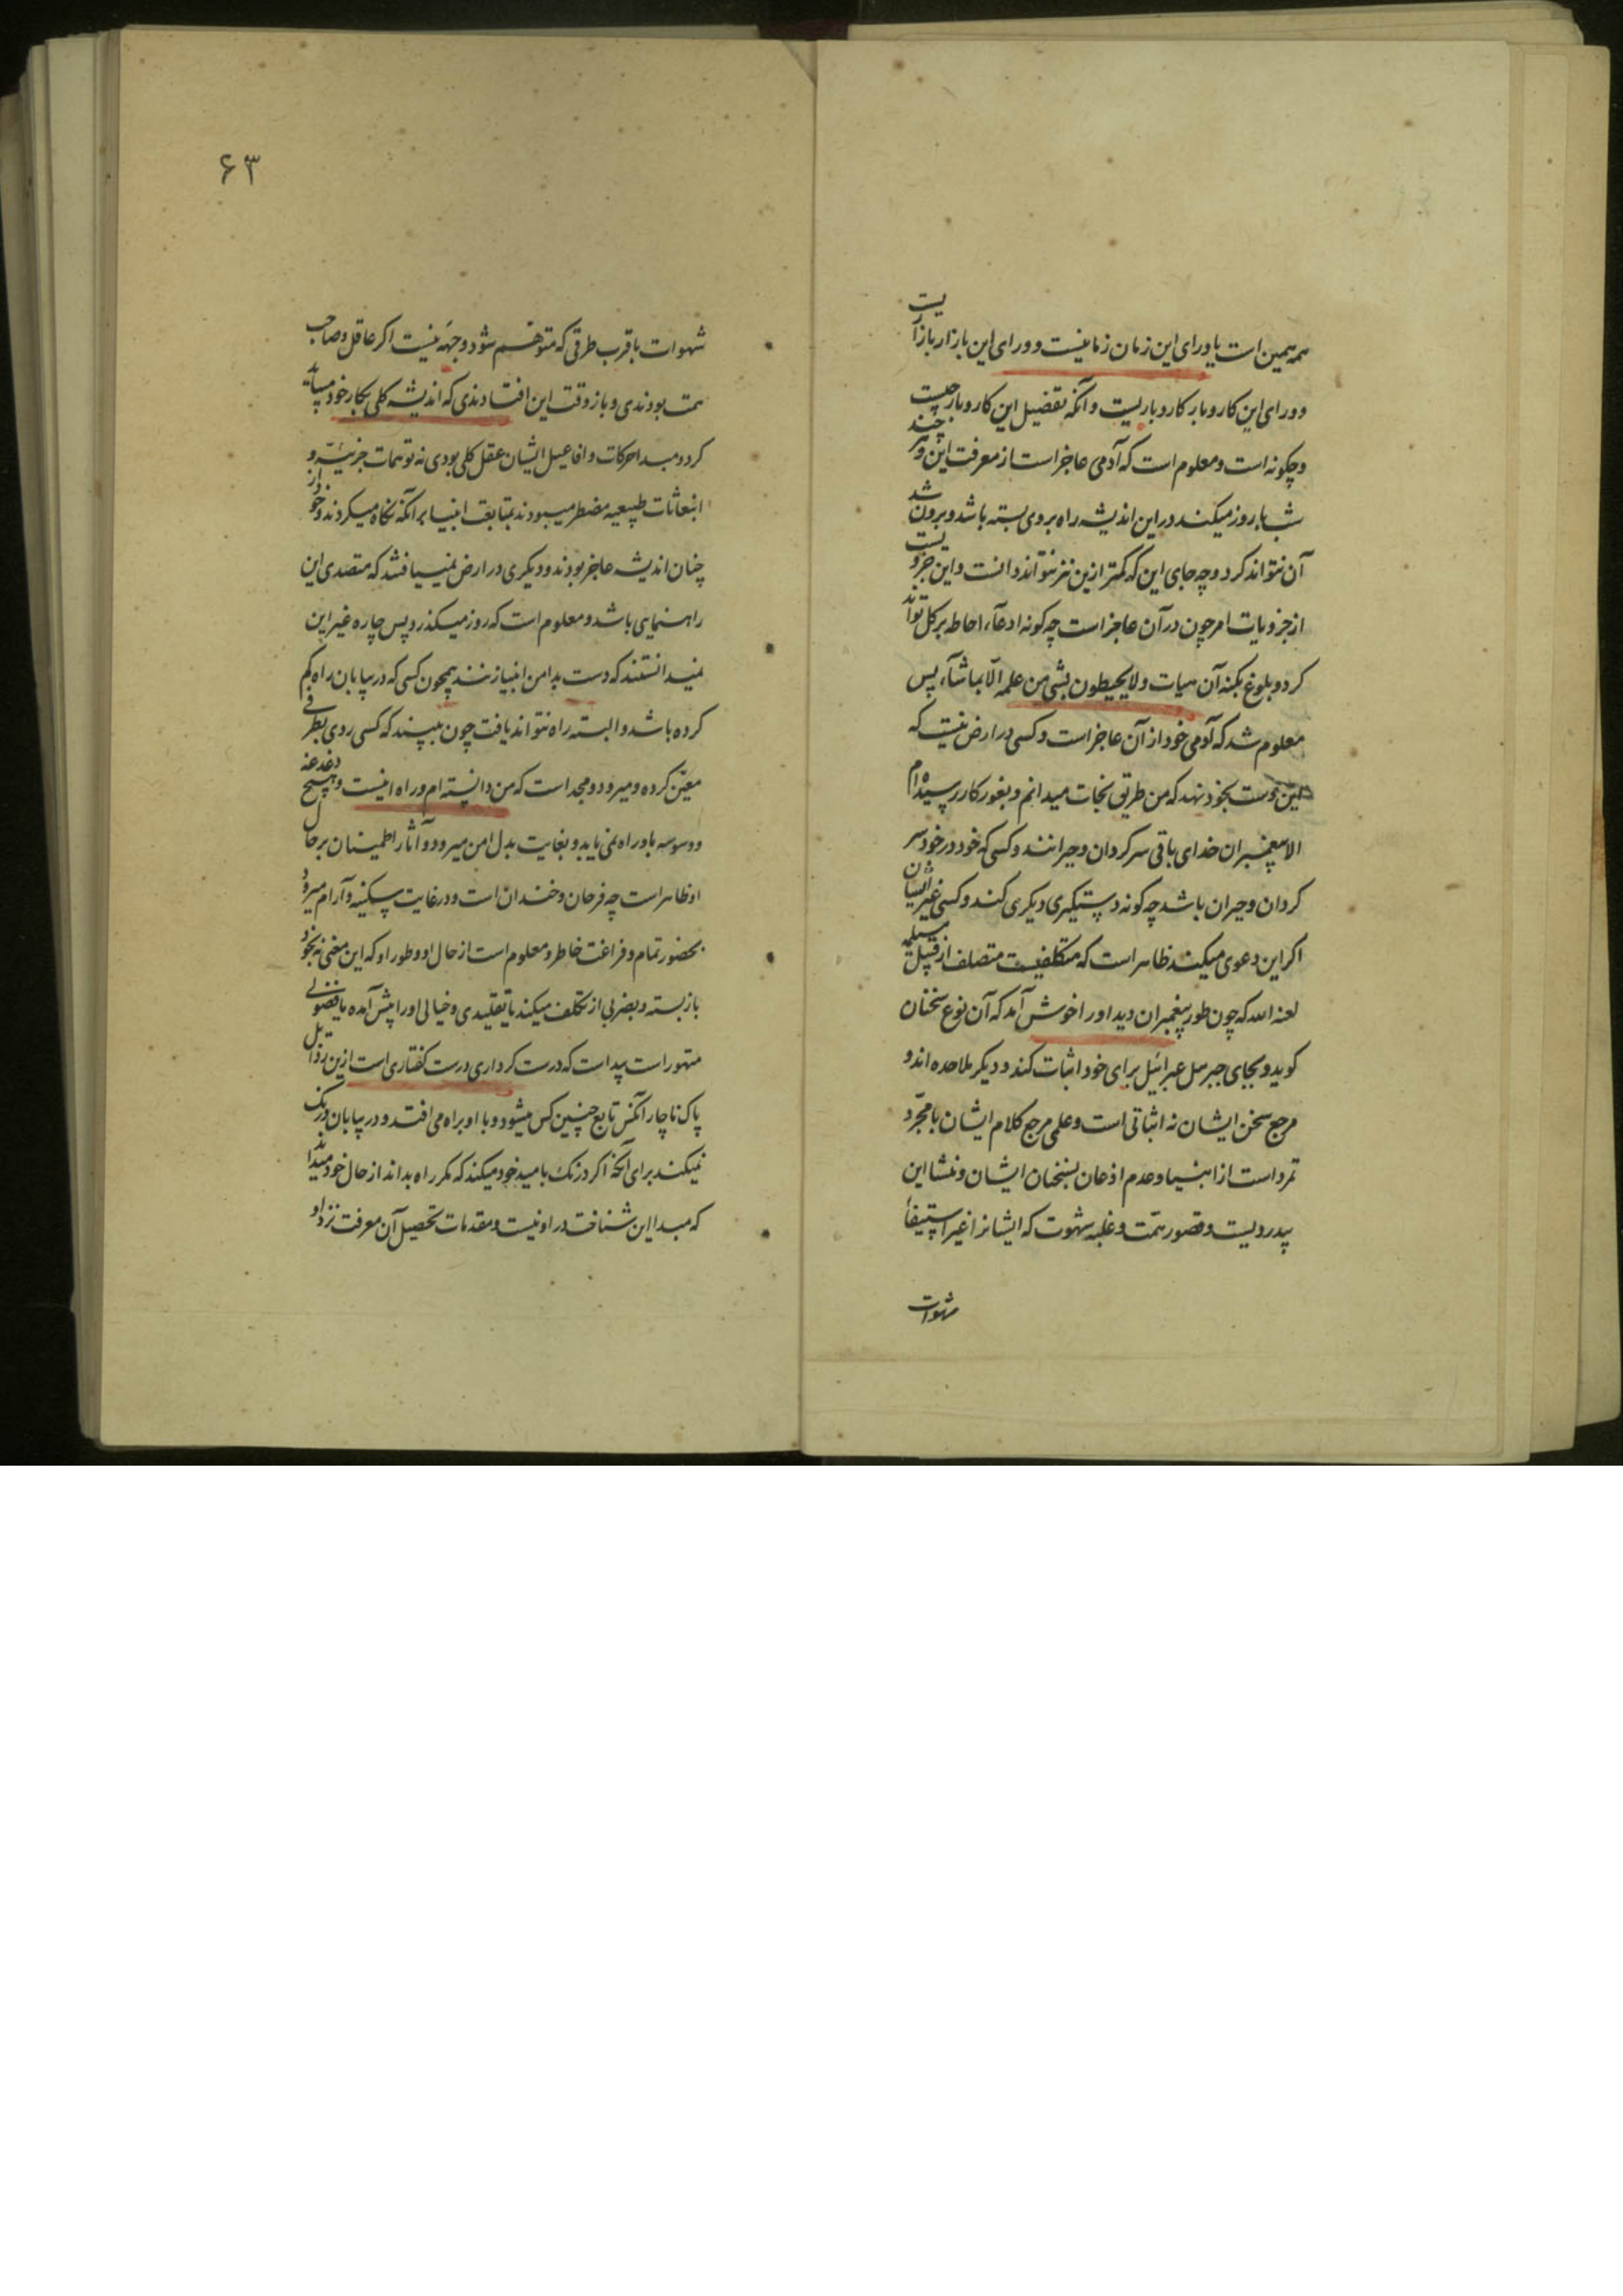 همه همین است یا ورای این زمان زمانیست و ورای این بازار بازاریست
و ورای این کاروبار کاروباریست و آنکه تفضیل این کاروبار چیست
و چگونه است و معلوم است که آدمی عاجز است از معرفت این و هر چند
شبها روز میکند در این اندیشه راه بروی بسته باشد و برون شد
آن نتواند کرد و چه جای این که کمتر ازین نیز نتواند دانست و این جزویست
از جزویات امر چون در آن عاجز است چه کونه ادعاء احاطه بر کل تواند
کرد و بلوغ بکنه آن هیات ولا یحیطون بشی من علمه الا بما شآء پس
معلوم شد که آدمی خود از آن عاجز است و کسی در ارض نیست که
این دست بخود نهد که من طریق نجات میدانم و بغور کار رسیده ام
الا پیغمبران خدای باقی سرکردان و حیرانند و کسی که خود در خود سر
کردان و حیران باشد چه کونه دستکیری دیکری کند و کسی غیر ایشان
اکر این دعوی میکند ظاهر است که متکلفیست متصلف از قبیل مسیلمه
لعنه الله که چون طور پیغمبران دید او را خوش آمد که آن نوع سخنان
کوید و بجای جبرئیل عبرائیل برای خود اثبات کند و دیکر ملاحده اند و
مرجع سخن ایشان نه اثباتی است و علمی مرجع کلام ایشان با مجرّد
تمرد است از انبیا و عدم اذعان بسخنان ایشان و منشا این
بیدردیست و قصور همّت و غلبه شهوت که ایشانرا غیر استیفاء
شهوات
۶۳
شهوات باقرب طرقی که متوهّم شود وجهه نیست اکر عاقل و صاحب
همت بودندی و باز وقت این افتادندی که اندیشه کلی بکار خود میباید
کرد و مبدا حرکات و افاعیل ایشان عقل کلی بودی نه توهمات جزئیّه و
انبعاثات طبیعیه مضطر میبودند بمتابعت انبیا بر آنکه نکاه میکردند و خود از
چنان اندیشه عاجز بودند و دیکری در ارض نمییافتند که متصدی این
راهنمای باشد و معلوم است که روز میکذرد پس چاره غیر این
نمیدانستند که دست بدامن انبیا زنند همچون کسی که در بیابان راه کم
کرده باشد و البته راه نتواند یافت چون ببیند که کسی روی بطرفی
معیّن کرده و میرود و مجد است که من دانسته ام و راه اینست و هیچ دغدغه
و وسوسه باو راه نمی یابد و بغایت بدل امن میرود و آثار اطمینان بر حال
او ظاهر است چه فرحان و خندان است و در غایت سکینه و آرام میرود
بحضور تمام و فراغت خاطر و معلوم است از حال او و طور او که این معنی نه بخود
باز بسته و بضربی از تکلف میکند یا تقلیدی و خیالی او را پیش آمده یا فضولی
متهور است پیداست که درست کرداری درست کفتاری است ازین رذایل
پاک ناچار آنکس تابع چنین کس میشود و با او براه می افتد و در بیابان درنک
نمیکند برای آنکه اکر درنک بامید خود میکند که مکر راه بداند از حال خود میداند
که مبدا این شناخت در او نیست و مقدمات تحصیل آن معرفت نزد او